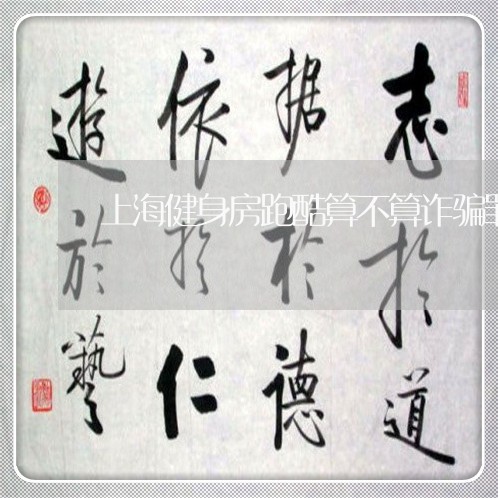 志於道
据於德
依於仁
遊於藝
上海健身房跑酷算不算诈骗